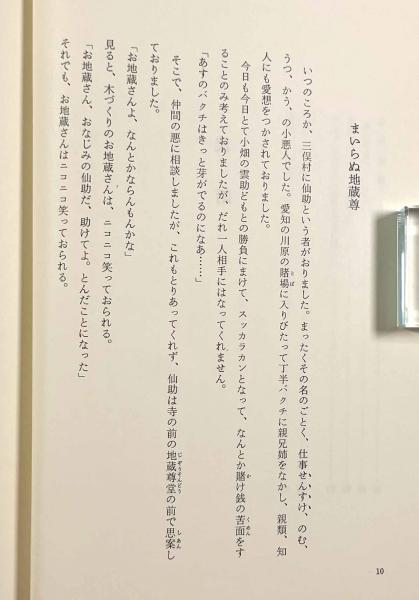 まいらぬ地蔵尊
いつのころか、三俣村に仙助という者がおりました。まったくその名のごとく、仕事せんすけ、のむ、
うつ、かう、の小悪人でした。愛知の川原の賭場に入りびたって丁半バクチに親兄姉をなかし、親類、知
人にも愛想をつかされておりました。
今日も今日とて小畑の雲助どもとの勝負にまけて、スッカラカンとなって、なんとか賭け銭の苦面をす
ることのみ考えておりましたが、だれ一人相手にはなってくれません。
「あすのバクチはきっと芽がでるのになあ……」
そこで、仲間の悪に相談しましたが、これもとりあってくれず、仙助は寺の前の地蔵尊堂の前で思案し
ておりました。
「お地蔵さんよ、なんとかならんもんかな」
見ると、木づくりのお地蔵さんは、ニコニコ笑っておられる。
「お地蔵さん、おなじみの仙助だ、助けてよ。とんだことになった」
それでも、お地蔵さんはニコニコ笑っておられる。
10